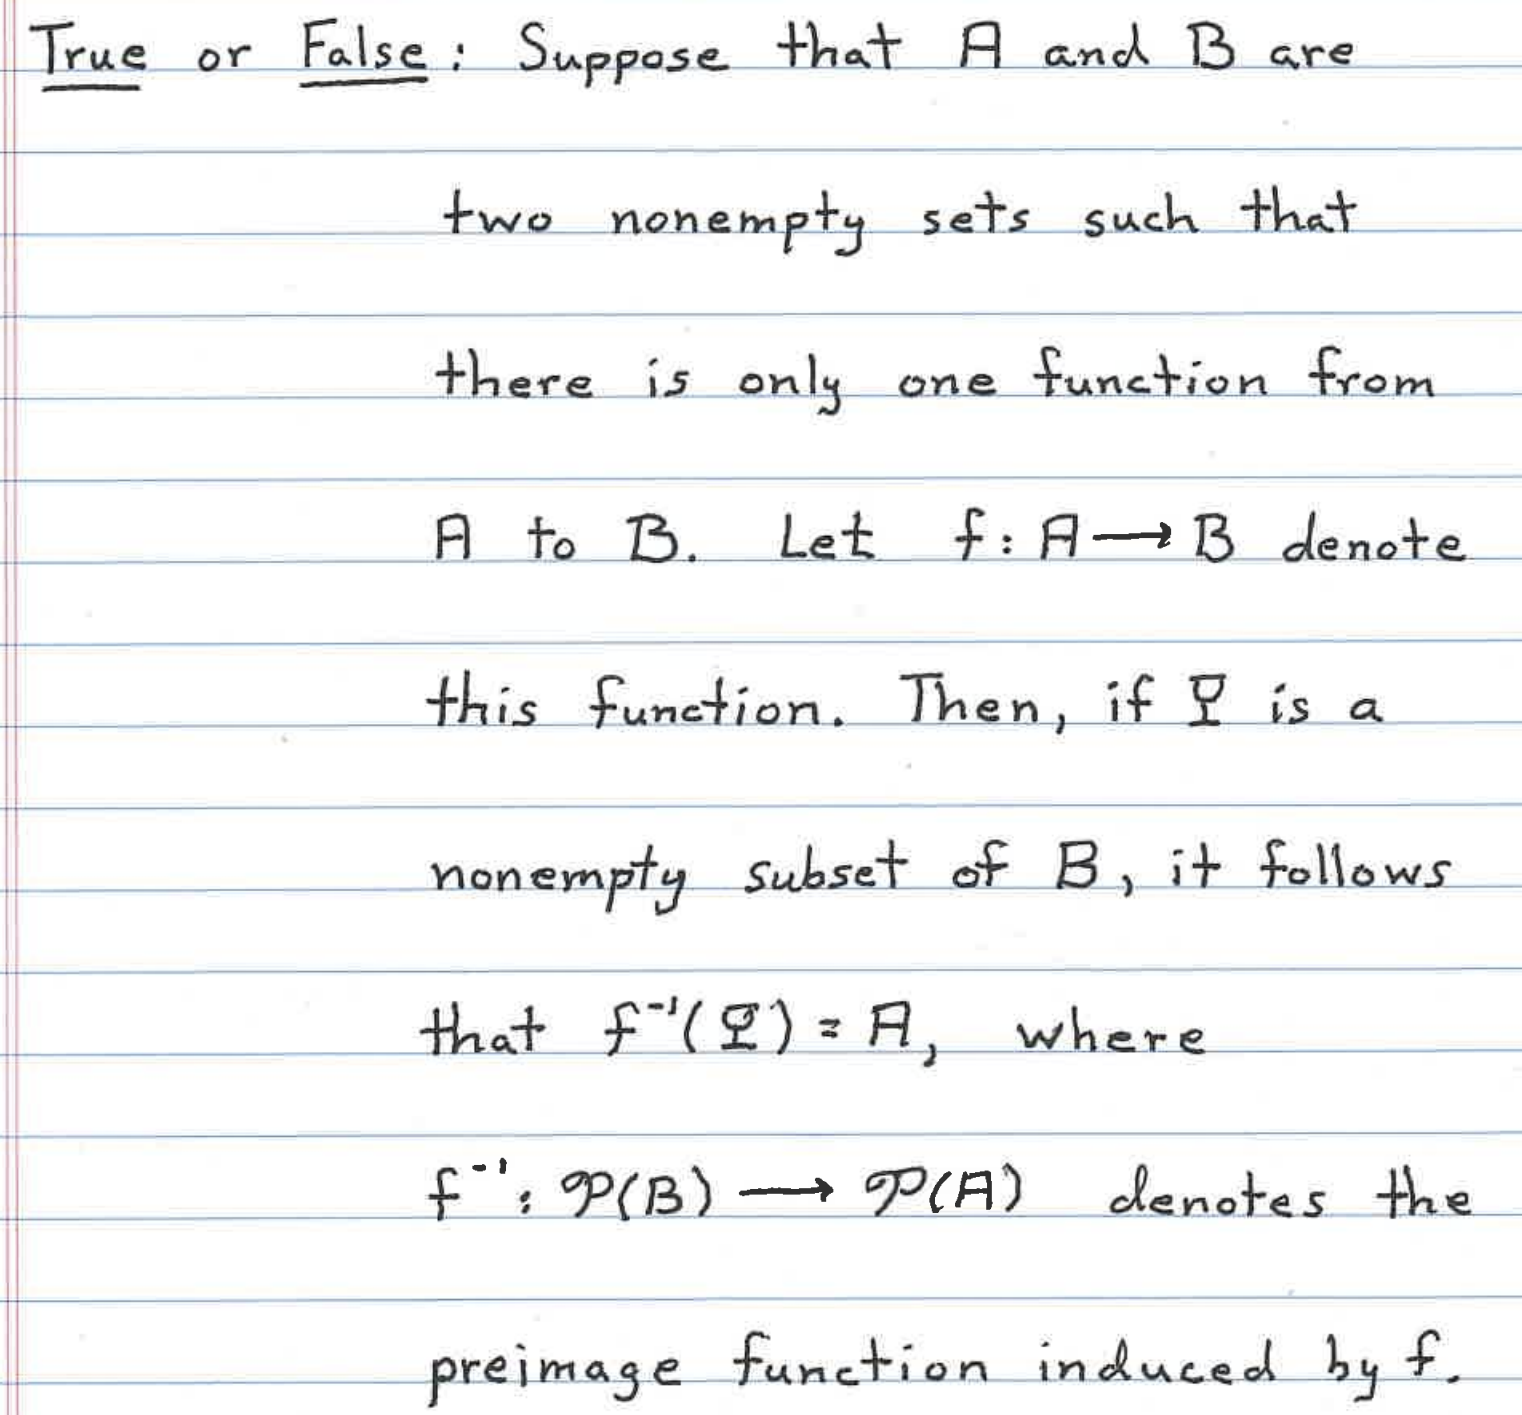 True or False: Suppose that A and B are
two nonempty sets such that
there is only one function from
A to B. Let f: A ⟶ B denote
this function. Then, if Ψ is a
nonempty subset of B, it follows
that f⁻¹(Ψ) = A, where
f⁻¹: 𝒫(B) ⟶ 𝒫(A) denotes the
preimage function induced by f.